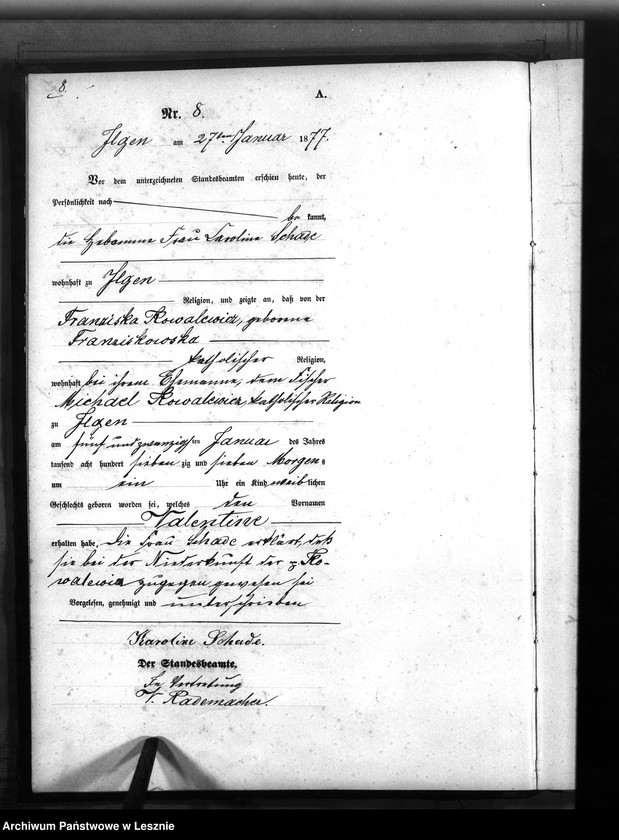 8.
A.
Nr. 8.
Ilgen am 27ten Januar 1877.
Vor dem unterzeichneten Standesbeamten erschien heute, der
Persönlichkeit nach
be kannt,
die Hebamme Frau Caroline Schade
wohnhaft zu Ilgen
Religion, und zeigte an, daß von der
Franziska Kowalewicz, geborene
Franziskowska
katholischer Religion,
wohnhaft bei ihrem Ehemanne, dem Fischer
Michael Kowalewicz, katholischer Religion
zu Ilgen
am fünf und zwanzigsten Januar des Jahres
tausend acht hundert sieben zig und sieben Morgens
um ein Uhr ein Kind weiblichen
Geschlechts geboren worden sei, welches den Vornamen
Valentine
erhalten habe. Die Frau Schade erklärt, daß
sie bei der Niederkunft der Ko-
walewicz zugegen gewesen sei
Vorgelesen, genehmigt und unterschrieben
Karoline Schade.
Der Standesbeamte.
In Vertretung
V. Rademacher.
Archiwum Państwowe w Lesznie